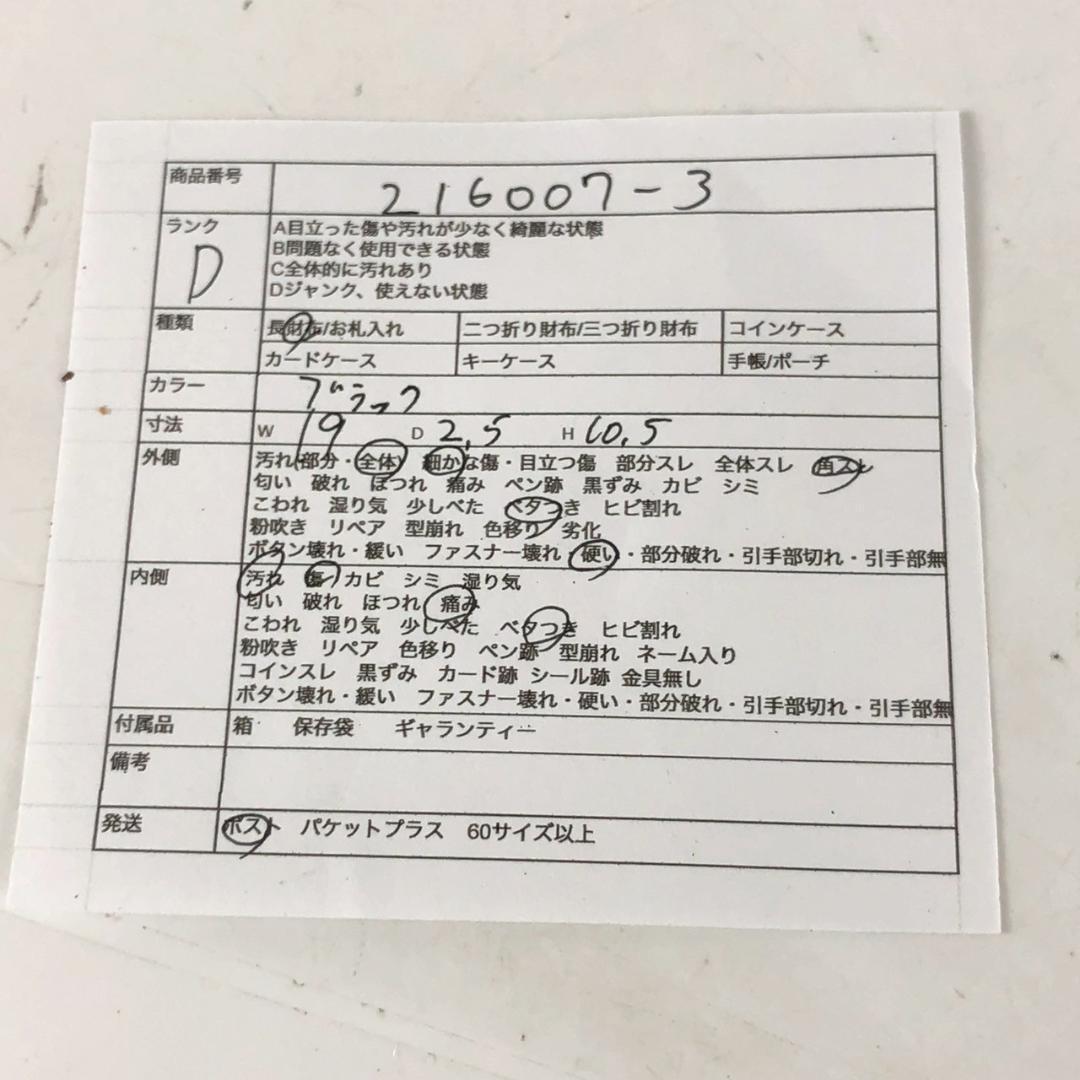 商品番号 216007-3
ランク A目立った傷や汚れが少なく綺麗な状態
B問題なく使用できる状態
D C全体的に汚れあり
Dジャンク、使えない状態
種類 長財布/お札入れ 二つ折り財布/三つ折り財布 コインケース
カードケース キーケース 手帳/ポーチ
カラー ブラック
寸法 W 19 D 2,5 H 10,5
外側 汚れ(部分・全体) 細かな傷・目立つ傷 部分スレ 全体スレ 角スレ
匂い 破れ ほつれ 痛み ペン跡 黒ずみ カビ シミ
こわれ 湿り気 少しべた ベタつき ヒビ割れ
粉吹き リペア 型崩れ 色移り 劣化
ボタン壊れ・緩い ファスナー壊れ・硬い・部分破れ・引手部切れ・引手部無
内側 汚れ 傷 カビ シミ 湿り気
匂い 破れ ほつれ 痛み
こわれ 湿り気 少しべた ベタつき ヒビ割れ
粉吹き リペア 色移り ペン跡 型崩れ ネーム入り
コインスレ 黒ずみ カード跡 シール跡 金具無し
ボタン壊れ・緩い ファスナー壊れ・硬い・部分破れ・引手部切れ・引手部無
付属品 箱 保存袋 ギャランティー
備考
発送 ポスト パケットプラス 60サイズ以上